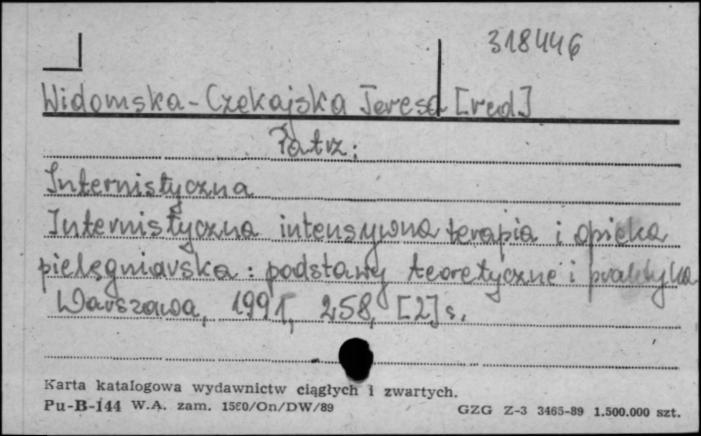 318446
Widomska-Czekajska Teresa [red]
Patrz:
Internistyczna
Internistyczna intensywna terapia i opieka
pielęgniarska : podstawy teoretyczne i praktyka
Warszawa, 1991, 258, [2] s.
Karta katalogowa wydawnictw ciągłych i zwartych.
Pu-B-144 W.A. zam. 1560/On/DW/89 GZG Z-3 3465-89 1.500.000 szt.